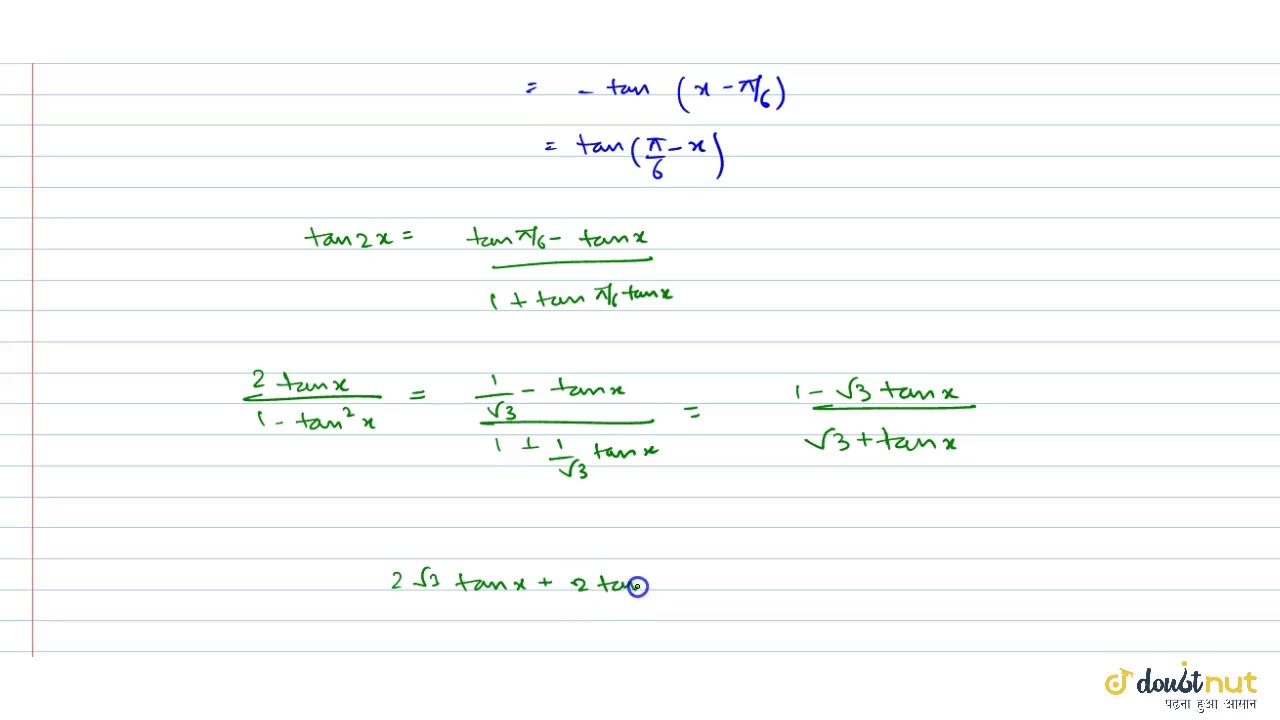 = - tan (x - π/6)
= tan (π/6 - x)
tan 2x = (tan π/6 - tan x) / (1 + tan π/6 tan x)
2 tan x / (1 - tan² x) = (1/√3 - tan x) / (1 + 1/√3 tan x) = (1 - √3 tan x) / (√3 + tan x)
2 √3 tan x + 2 tan
doubtnut
पढ़ना हुआ आसान